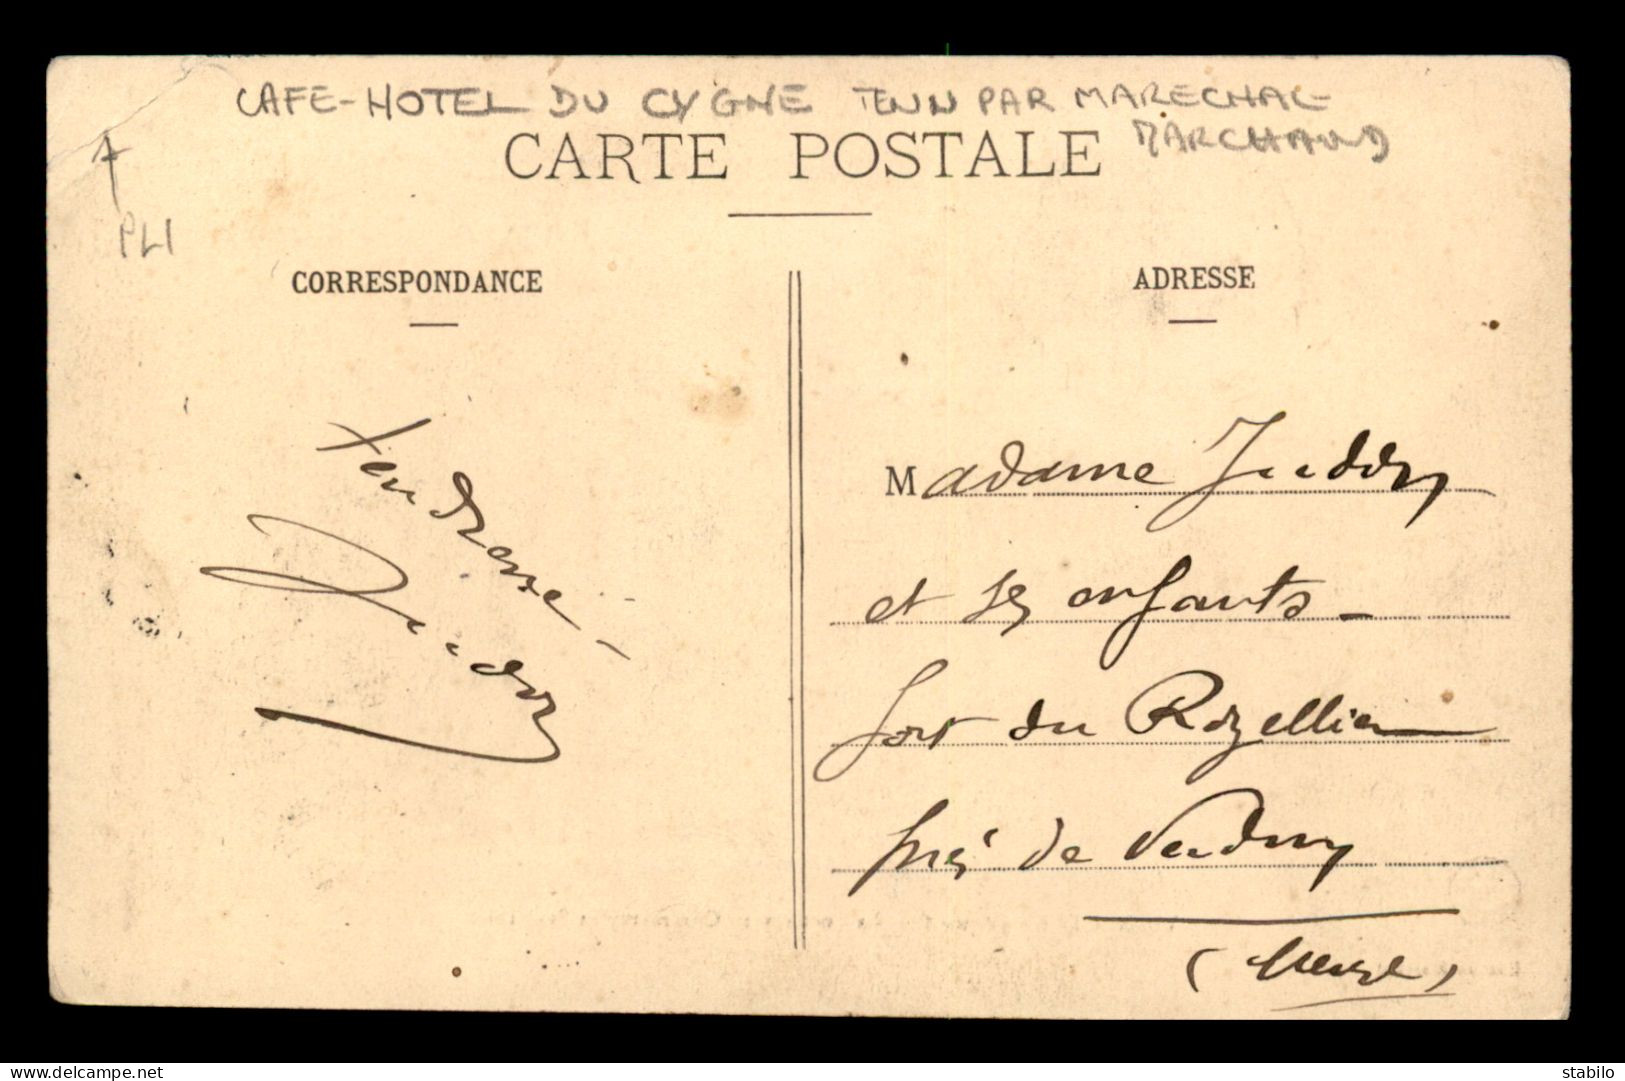 CAFE-HOTEL DU CYGNE TENU PAR MARECHAL
MARCHAND
CARTE POSTALE
PLI
CORRESPONDANCE
ADRESSE
Tendresse
Madame
et ses enfants
fort du Rozellier
près de Verdun
(Meuse)
www.delcampe.net
stabilo